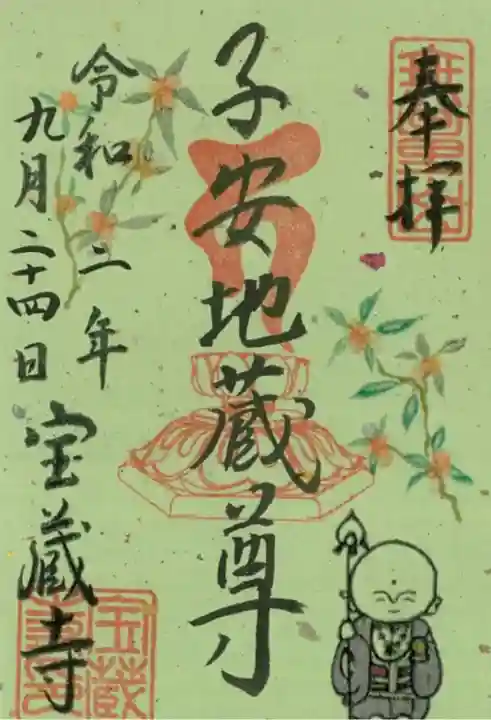 奉拝
子安地蔵尊
令和二年
九月二十四日
宝蔵寺